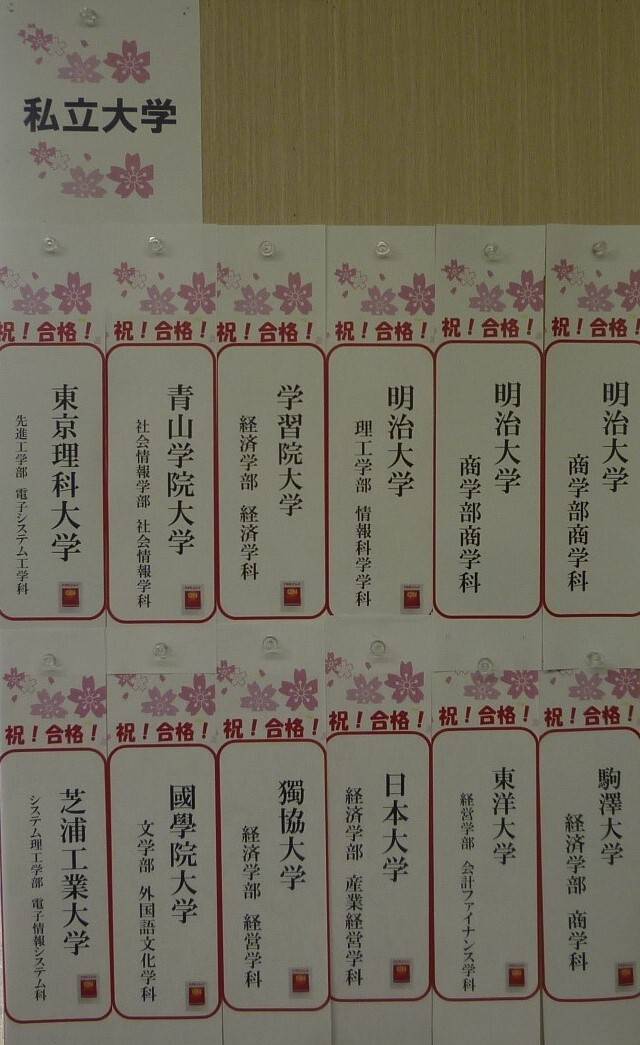 私立大学
祝！合格！
東京理科大学
先進工学部 電子システム工学科
祝！合格！
青山学院大学
社会情報学部 社会情報学科
祝！合格！
学習院大学
経済学部 経済学科
祝！合格！
明治大学
理工学部 情報科学学科
祝！合格！
明治大学
商学部商学科
祝！合格！
明治大学
商学部商学科
祝！合格！
芝浦工業大学
システム理工学部 電子情報システム科
祝！合格！
國學院大学
文学部 外国語文化学科
祝！合格！
獨協大学
経済学部 経営学科
祝！合格！
日本大学
経済学部 産業経営学科
祝！合格！
東洋大学
経営学部 会計ファイナンス学科
祝！合格！
駒澤大学
経済学部 商学科